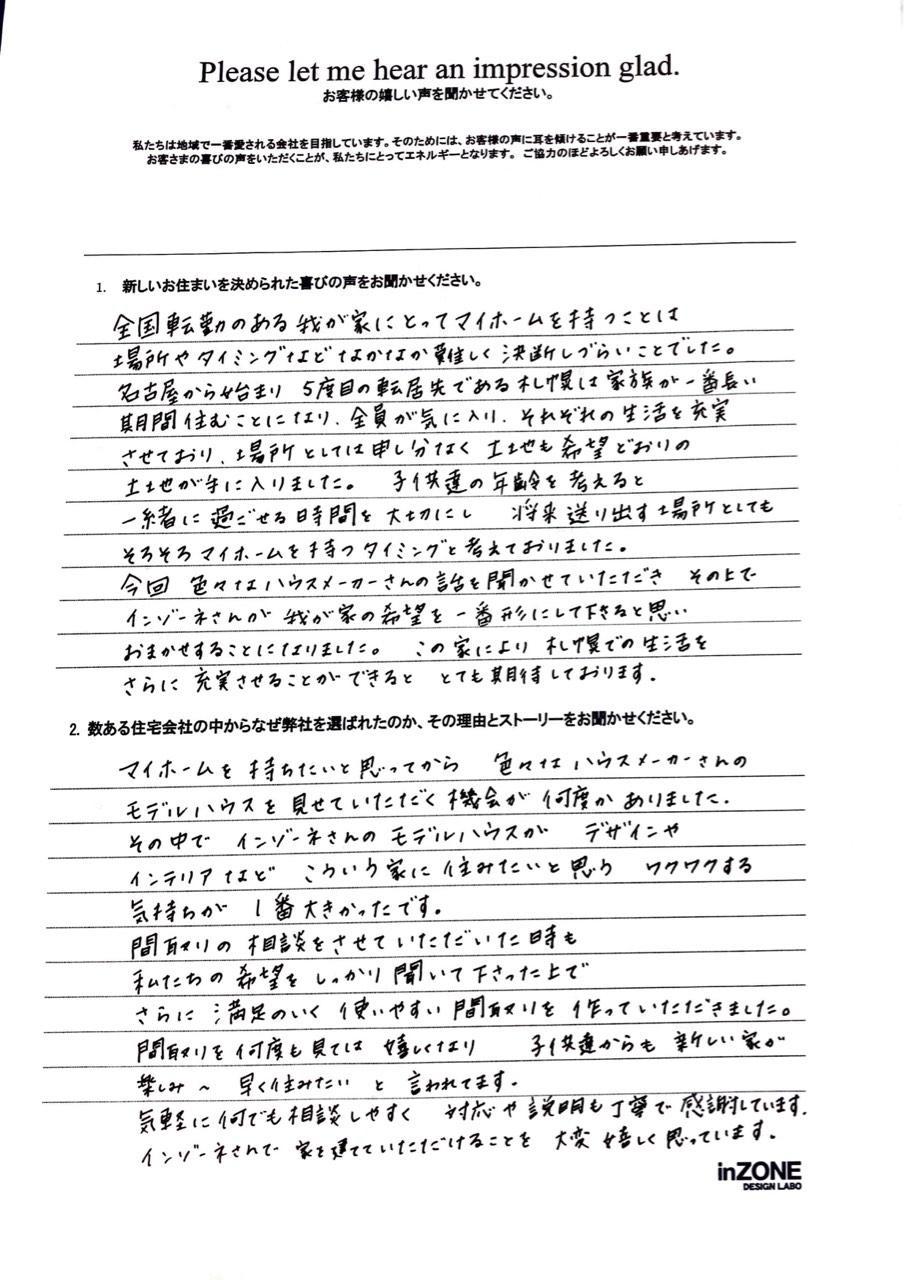 Please let me hear an impression glad.
お客様の嬉しい声を聞かせてください。
私たちは地域で一番愛される会社を目指しています。そのためには、お客様の声に耳を傾けることが一番重要と考えています。
お客さまの喜びの声をいただくことが、私たちにとってエネルギーとなります。ご協力のほどよろしくお願い申しあげます。
1. 新しいお住まいを決められた喜びの声をお聞かせください。
全国転勤のある我が家にとってマイホームを持つことは
場所やタイミングなどなかなか難しく決断しづらいことでした。
名古屋から始まり 5度目の転居先である札幌は家族が一番長い
期間住むことになり、全員が気に入り、それぞれの生活を充実
させており、場所としては申し分なく 土地も希望どおりの
土地が手に入りました。 子供達の年齢を考えると
一緒に過ごせる時間を大切にし 将来送り出す場所としても
そろそろマイホームを持つタイミングと考えておりました。
今回 色々なハウスメーカーさんの話を聞かせていただき その上で
インゾーネさんが 我が家の希望を一番形にして下さると思い
おまかせすることになりました。 この家により 札幌での生活を
さらに 充実させることができると とても期待しております。
2. 数ある住宅会社の中からなぜ弊社を選ばれたのか、その理由とストーリーをお聞かせください。
マイホームを 持ちたいと思ってから 色々なハウスメーカーさんの
モデルハウスを 見せていただく機会が 何度かありました。
その中で インゾーネさんの モデルハウスが デザインや
インテリアなど こういう家に住みたいと思う ワクワクする
気持ちが 1番大きかったです。
間取りの 相談をさせていただいた時も
私たちの 希望を しっかり聞いて下さった上で
さらに 満足のいく 使いやすい 間取りを 作っていただきました。
間取りを何度も見ては 嬉しくなり 子供達からも 新しい家が
楽しみ〜 早く住みたい と 言われてます。
気軽に何でも相談しやすく 対応や説明も丁寧で感謝しています。
インゾーネさんで 家を建てていただけることを 大変 嬉しく思っています。
inZONE
DESIGN LABO